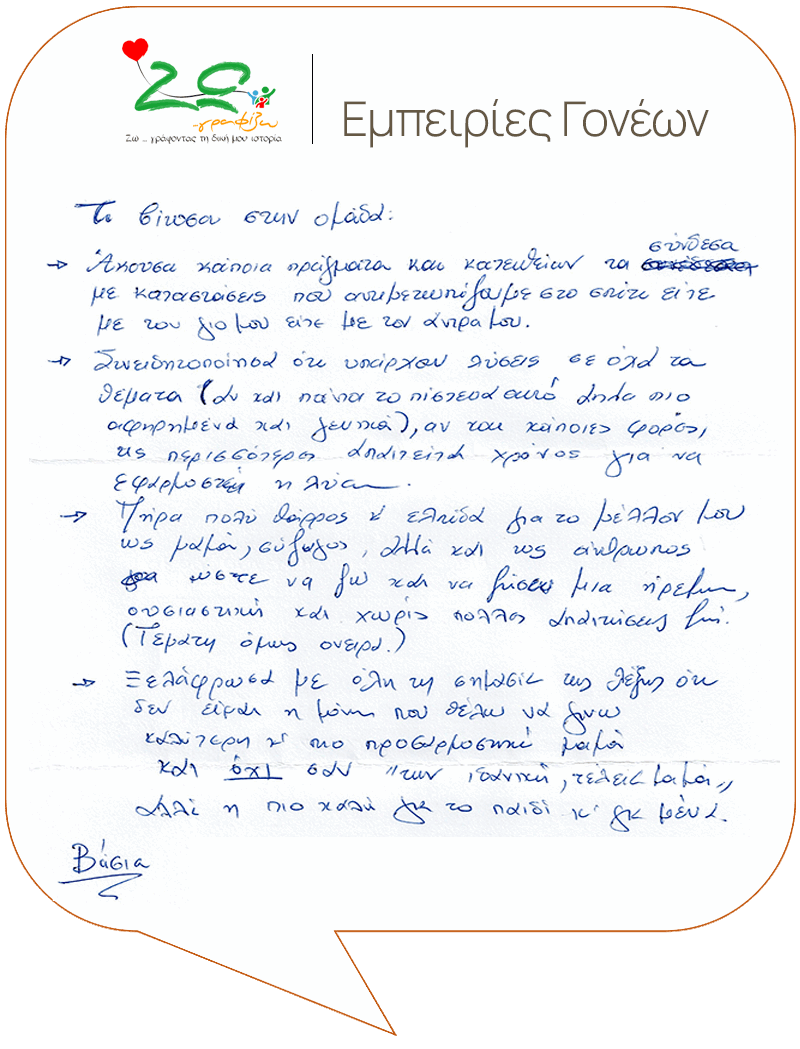 Ζω
γραφίζω
Ζω ... γράφοντας τη δική μου ιστορία
Εμπειρίες Γονέων
Τι βίωσα στην ομάδα:
→ Άκουσα κάποια πράγματα και κατευθείαν τα σύνδεσα
με καταστάσεις που αντιμετωπίζουμε στο σπίτι είτε
με τον γιο μου είτε με τον άντρα μου.
→ Συνειδητοποίησα ότι υπάρχουν λύσεις σε όλα τα
θέματα (αν και πάντα το πίστευα αυτό αλλά πιο
αφηρημένα και γενικά), αν και κάποιες φορές,
τις περισσότερες απαιτείται χρόνος για να
εφαρμοστεί η λύση.
→ Πήρα πολύ θάρρος κ' ελπίδα για το μέλλον μου
ως μαμά, σύζυγος, αλλά και ως άνθρωπος
ώστε να ζω και να ζήσω μια ήρεμη,
ουσιαστική και χωρίς πολλές απαιτήσεις ζωή.
(Γεμάτη όμως όνειρα.)
→ Ξελάφρωσα με όλη τη σημασία της λέξης ότι
δεν είμαι η μόνη που θέλω να γίνω
καλύτερη κ' πιο προσαρμοστική μαμά
και όχι σαν "την ιδανική, τέλεια μαμά"
αλλά η πιο καλή για το παιδί κ' για μένα.
Βάσια